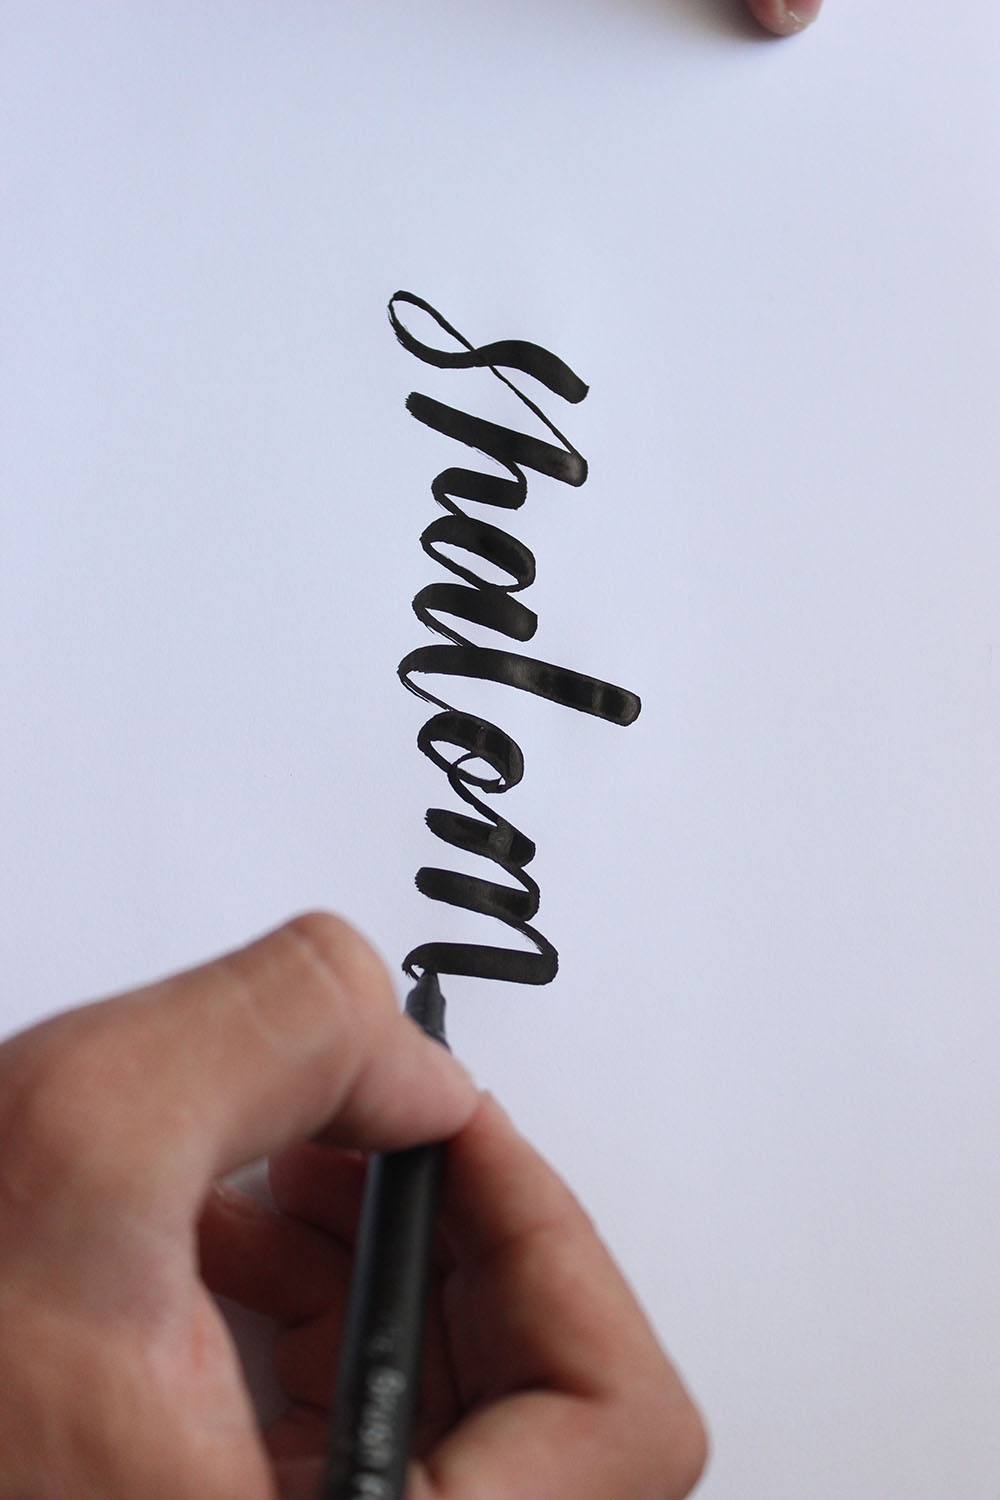 shalom
Brush